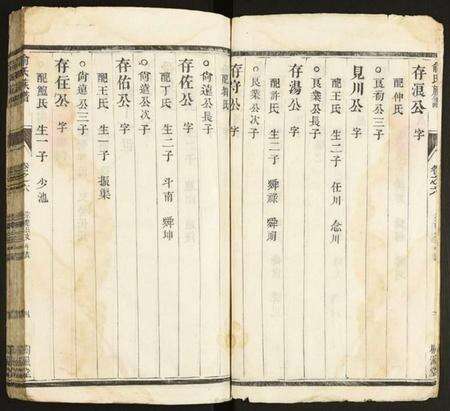 存浪公 字
配仲氏
○良前公三子
見川公 字
配王氏 生二子 任川 念川
○良業公長子
存湯公 字
配許氏 生二子 舜祿 舜
○良業公次子
存 公 字
配 氏
○尚遠公長子
存佐公 字
配丁氏 生二子 斗南 舜坤
○尚遠公次子
存佑公 字
配王氏 生一子 振渠
○尚遠公三子
存任公 字
配 氏 生一子 少池
卷之六